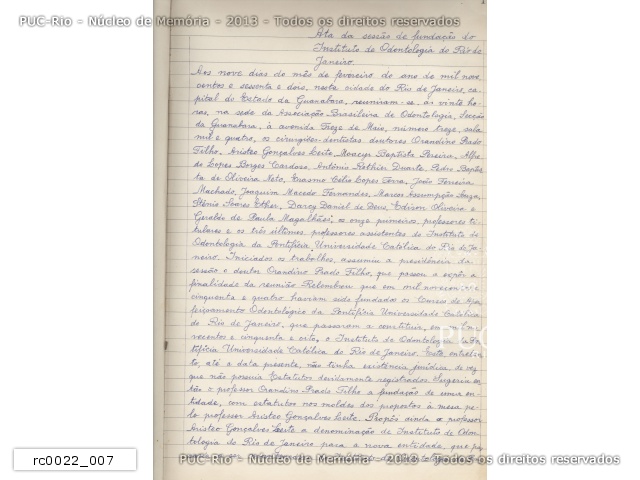 PUC-Rio - Núcleo de Memória - 2013 - Todos os direitos reservados
Ata da sessão de fundação do
Instituto de Odontologia do Rio de
Janeiro.
Aos nove dias do mês de fevereiro do ano de mil nove
centos e sessenta e dois, nesta cidade do Rio de Janeiro, ca
pital do Estado da Guanabara, reuniram-se, às vinte ho
ras, na sede da Associação Brasileira de Odontologia, Secção
da Guanabara, à avenida Treze de Maio, número treze, sala
mil e quatro, os cirurgiões-dentistas doutores Orandino Prado
Filho, Aristeo Gonçalves Leite, Moacyr Baptista Pereira, Alfre
do Lopes Borges Cardoso, Antônio Rothier Duarte, Pedro Baptis
ta de Oliveira Neto, Erasmo Celio Lopes Terra, João Ferreira
Machado, Joaquim Macedo Fernandes, Marcos Assumpção Souza,
Stênio Soares Ether, Darcy Daniel de Deus, Edison Oliveira e
Geraldo de Paula Magalhães, os onze primeiros professores ti
tulares e os três últimos professores assistentes do Instituto de
Odontologia da Pontifícia Universidade Católica do Rio de Ja
neiro. Iniciados os trabalhos, assumiu a presidência da
sessão o doutor Orandino Prado Filho, que passou a expôr a
finalidade da reunião. Relembrou que em mil novecentos e
cinquenta e quatro haviam sido fundados os Cursos de Aper
feiçoamento Odontológico da Pontifícia Universidade Católica
do Rio de Janeiro, que passaram a constituir, em mil no
vecentos e cinquenta e oito, o Instituto de Odontologia da Pon
tifícia Universidade Católica do Rio de Janeiro. Este, entretan
to, até a data presente, não tinha existência jurídica, de vez
que não possuia Estatutos devidamente registrados. Sugeria en
tão o professor Orandino Prado Filho a fundação de uma en
tidade, com estatutos nos moldes dos propostos à mesa pe
lo professor Aristeo Gonçalves Leite. Propôs ainda o professor
Aristeo Gonçalves Leite a denominação de Instituto de Odon
tologia do Rio de Janeiro para a nova entidade, que pas
PUC
rc0022_007
PUC-Rio - Núcleo de Memória - 2013 - Todos os direitos reservados